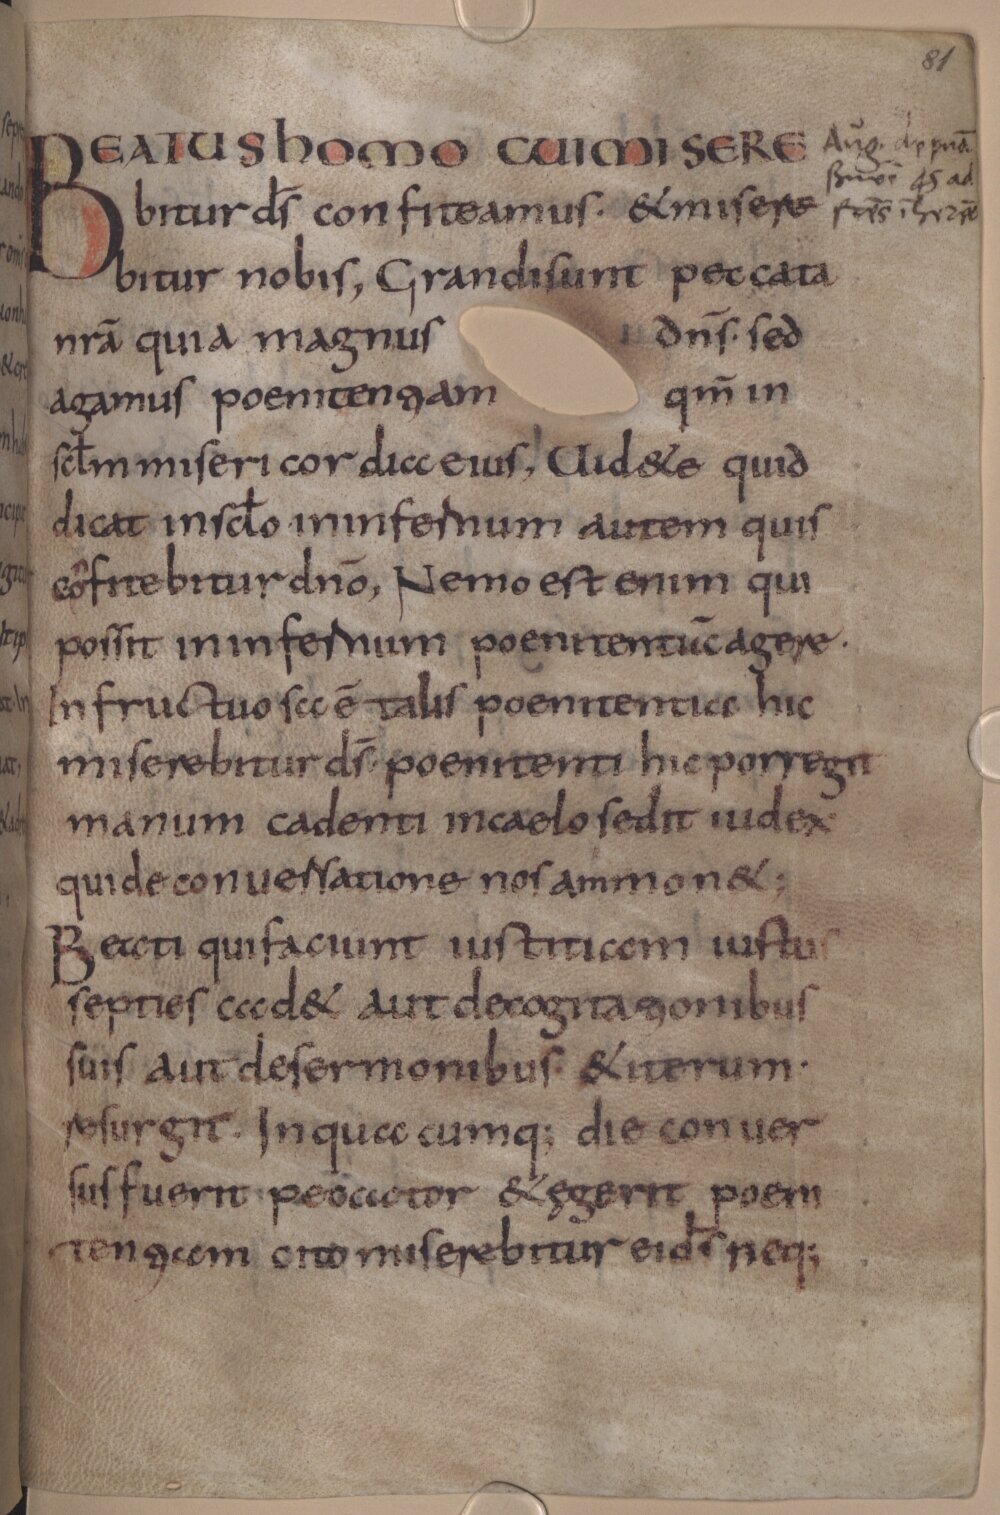 81
BEATUS homo CUI MISERE
bitur ds̄ confiteamus · & misere
bitur nobis, Grandi sunt peccata
nrā quia magnus dn̄s · sed
agamus poenitentiam qm̄ in
scłm misericordiae eius, Uid&e quid
dicat in scło in infernum autem quis
cōfitebitur dnō, Nemo est enim qui
possit in infernum poenitentiā agere ·
Infructuosa ē talis poenitentia hic
miserebitur ds̄ · poenitenti hic porregit
manum cadenti in caelo sedit iudex
qui de conuersatione nos ammon& ;
Beati qui faciunt iustitiam iustus
septies cad& aut de cogitationibus
suis aut de sermonibus · & iterum ·
resurgit · In quacumq; die conuer
sus fuerit peccator & ęgerit poeni
tentiam cito miserebitur ei ds̄ neq;
Aug.
45 ad